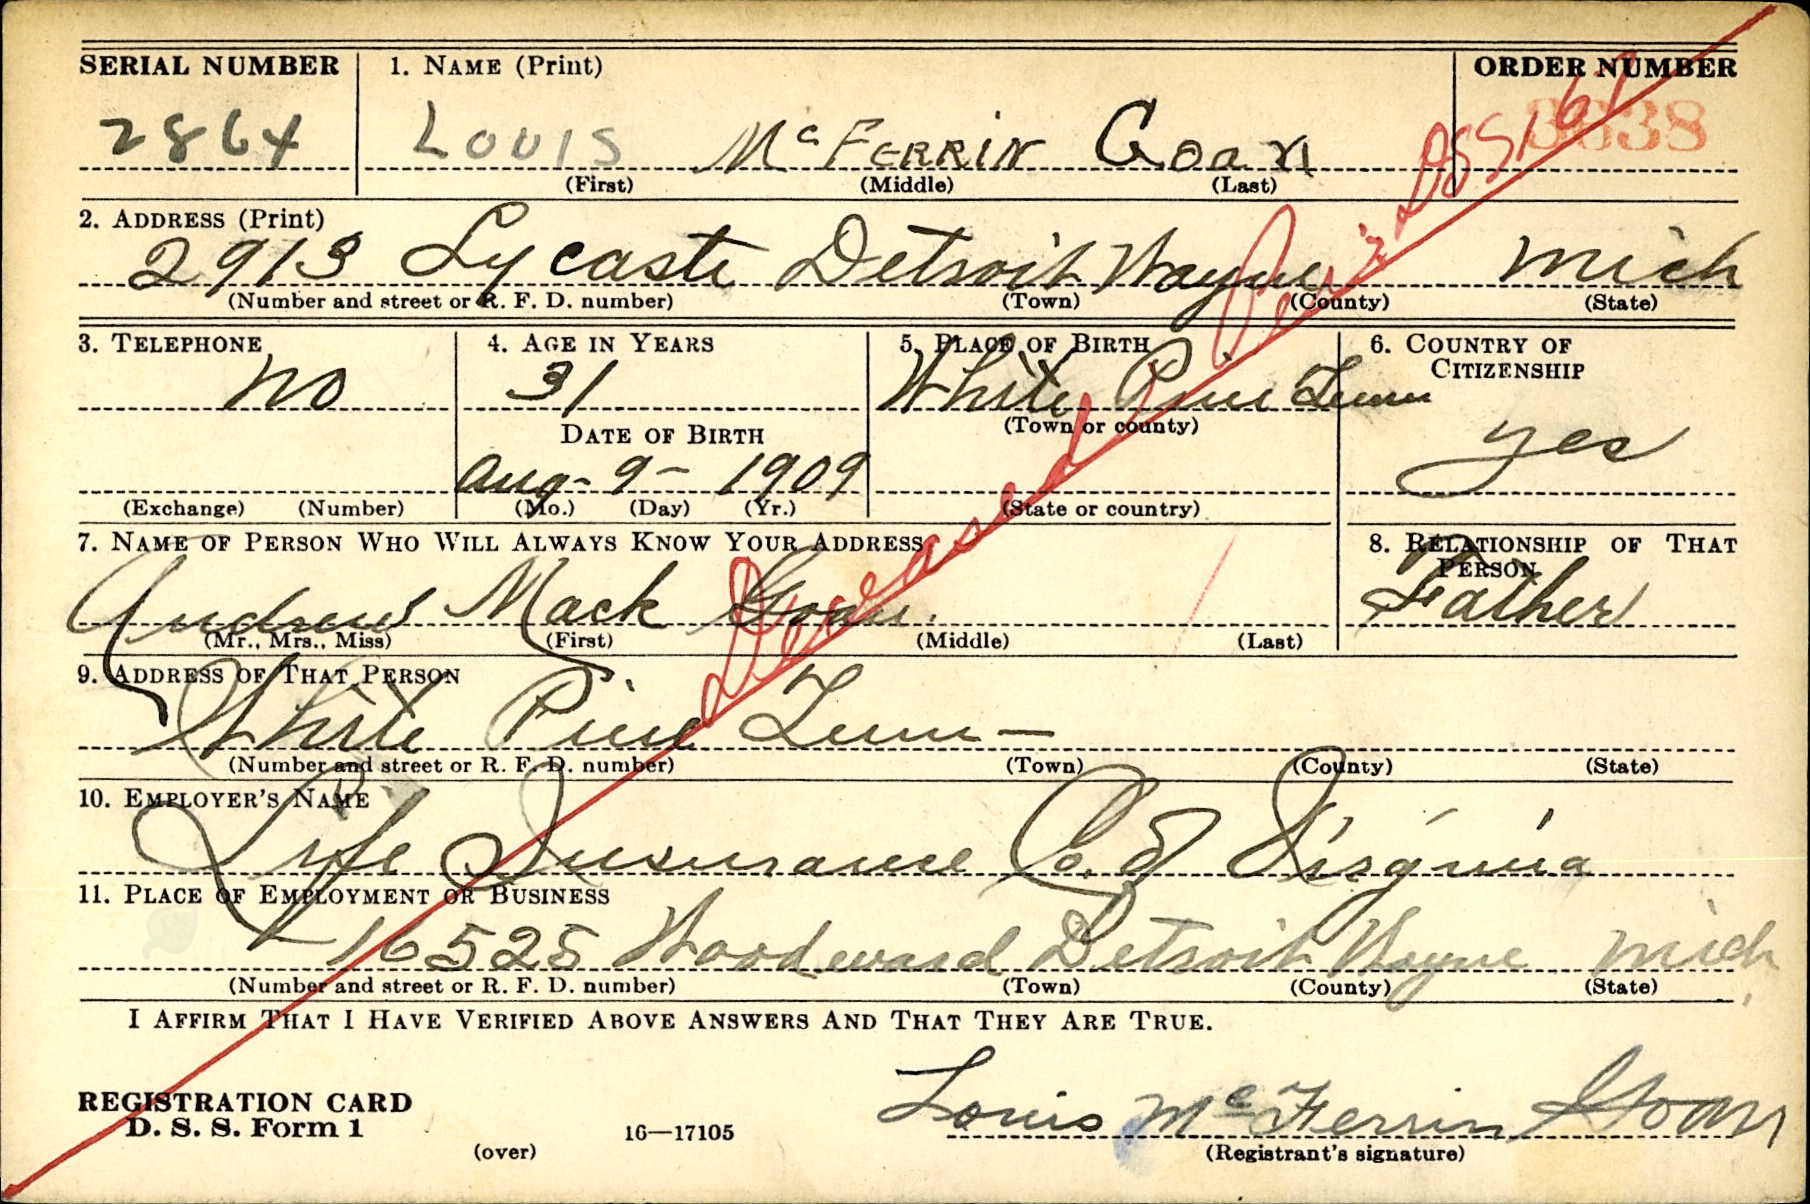 SERIAL NUMBER 1. NAME (Print) ORDER NUMBER
2864 LOUIS McFERRIN Goan 3638
(First) (Middle) (Last)
2. ADDRESS (Print)
2913 Lycaste Detroit Wayne Mich
(Number and street or R. F. D. number) (Town) (County) (State)
3. TELEPHONE 4. AGE IN YEARS 5. PLACE OF BIRTH 6. COUNTRY OF CITIZENSHIP
no 31 White Pine Tenn
(Town or county)
DATE OF BIRTH yes
Aug - 9 - 1909
(Exchange) (Number) (Mo.) (Day) (Yr.) (State or country)
7. NAME OF PERSON WHO WILL ALWAYS KNOW YOUR ADDRESS 8. RELATIONSHIP OF THAT PERSON
Andrew Mack Goan. Father
(Mr., Mrs., Miss) (First) (Middle) (Last)
9. ADDRESS OF THAT PERSON
White Pine Tenn —
(Number and street or R. F. D. number) (Town) (County) (State)
10. EMPLOYER'S NAME
Life Insurance Co. of Virginia
11. PLACE OF EMPLOYMENT OR BUSINESS
16525 Woodward Detroit Wayne Mich
(Number and street or R. F. D. number) (Town) (County) (State)
I AFFIRM THAT I HAVE VERIFIED ABOVE ANSWERS AND THAT THEY ARE TRUE.
REGISTRATION CARD
D. S. S. Form 1
(over) 16—17105
Louis McFerrin Goan
(Registrant's signature)
Deceased Per DSS 167